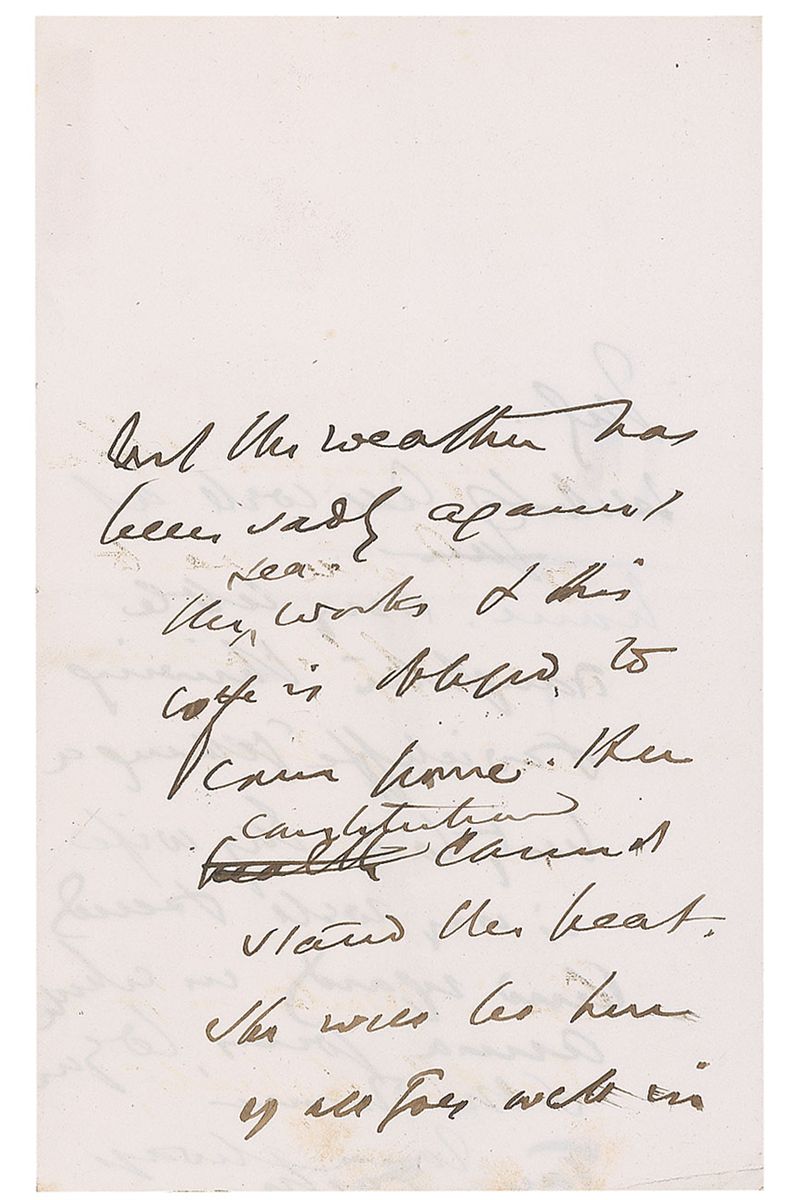 but the weather has
been sadly against
sea
the works & this
wife is obliged to
come home. Her
constitution
health cannot
stand the heat.
She will be here
if all goes well in